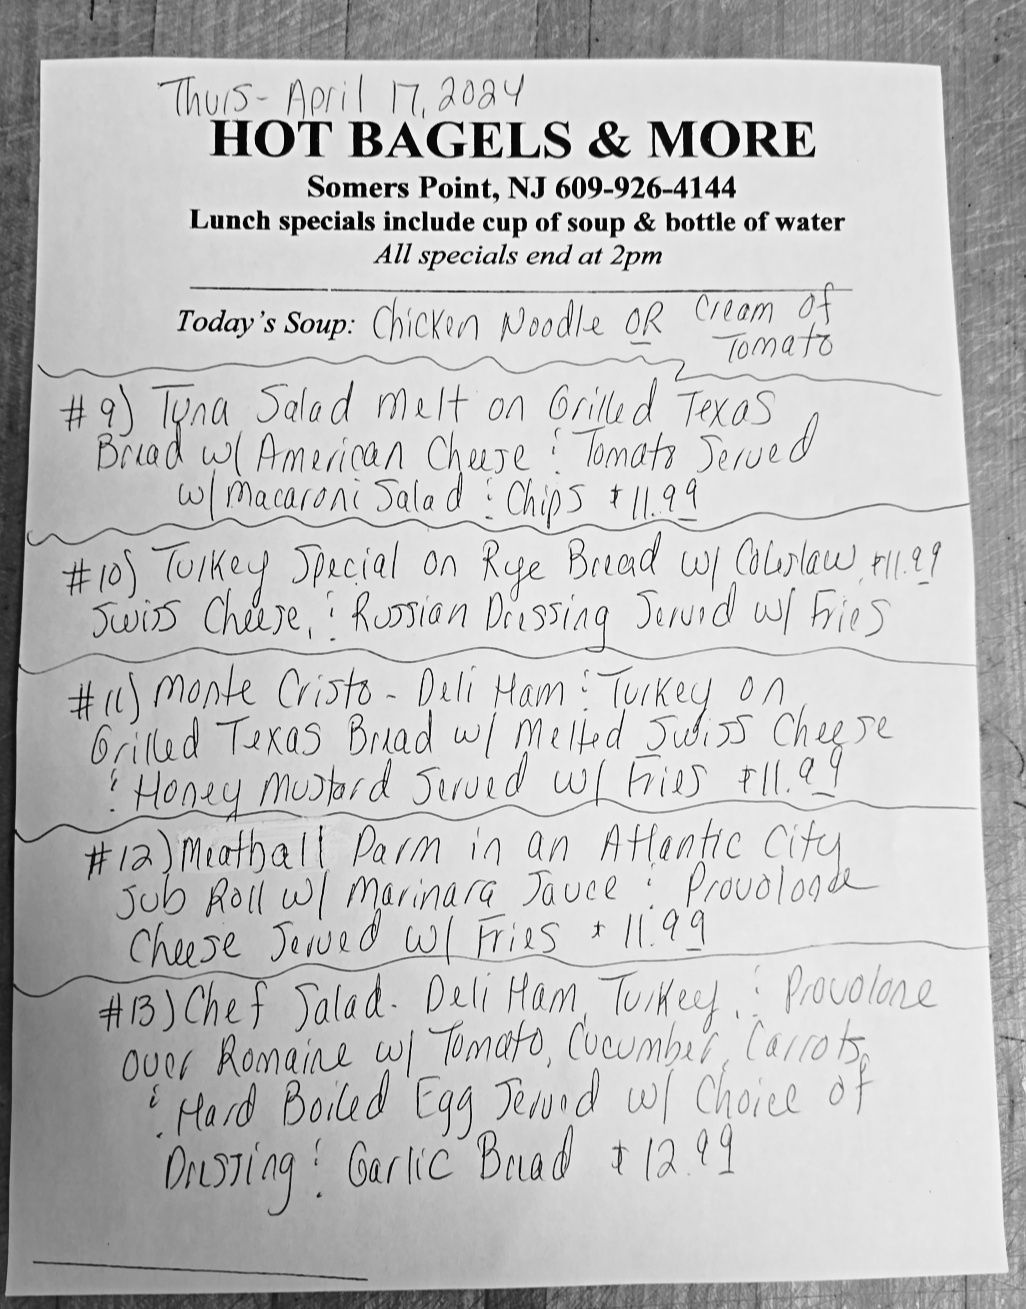 Thurs- April 17, 2024
HOT BAGELS & MORE
Somers Point, NJ 609-926-4144
Lunch specials include cup of soup & bottle of water
All specials end at 2pm
Today's Soup: Chicken Noodle OR Cream of
Tomato
#9) Tuna Salad Melt on Grilled Texas
Bread w/ American Cheese & Tomato Served
w/ Macaroni Salad & Chips $11.99
#10) Turkey Special on Rye Bread w/ Coleslaw, $11.99
Swiss Cheese, & Russian Dressing Served w/ Fries
#11) Monte Cristo - Deli Ham & Turkey on
Grilled Texas Bread w/ Melted Swiss Cheese
& Honey Mustard Served w/ Fries $11.99
#12) Meatball Parm in an Atlantic City
Sub Roll w/ Marinara Sauce & Provolone
Cheese Served w/ Fries $11.99
#13) Chef Salad- Deli Ham, Turkey, & Provolone
over Romaine w/ Tomato, Cucumber, Carrots,
& Hard Boiled Egg Served w/ Choice of
Dressing & Garlic Bread $12.99